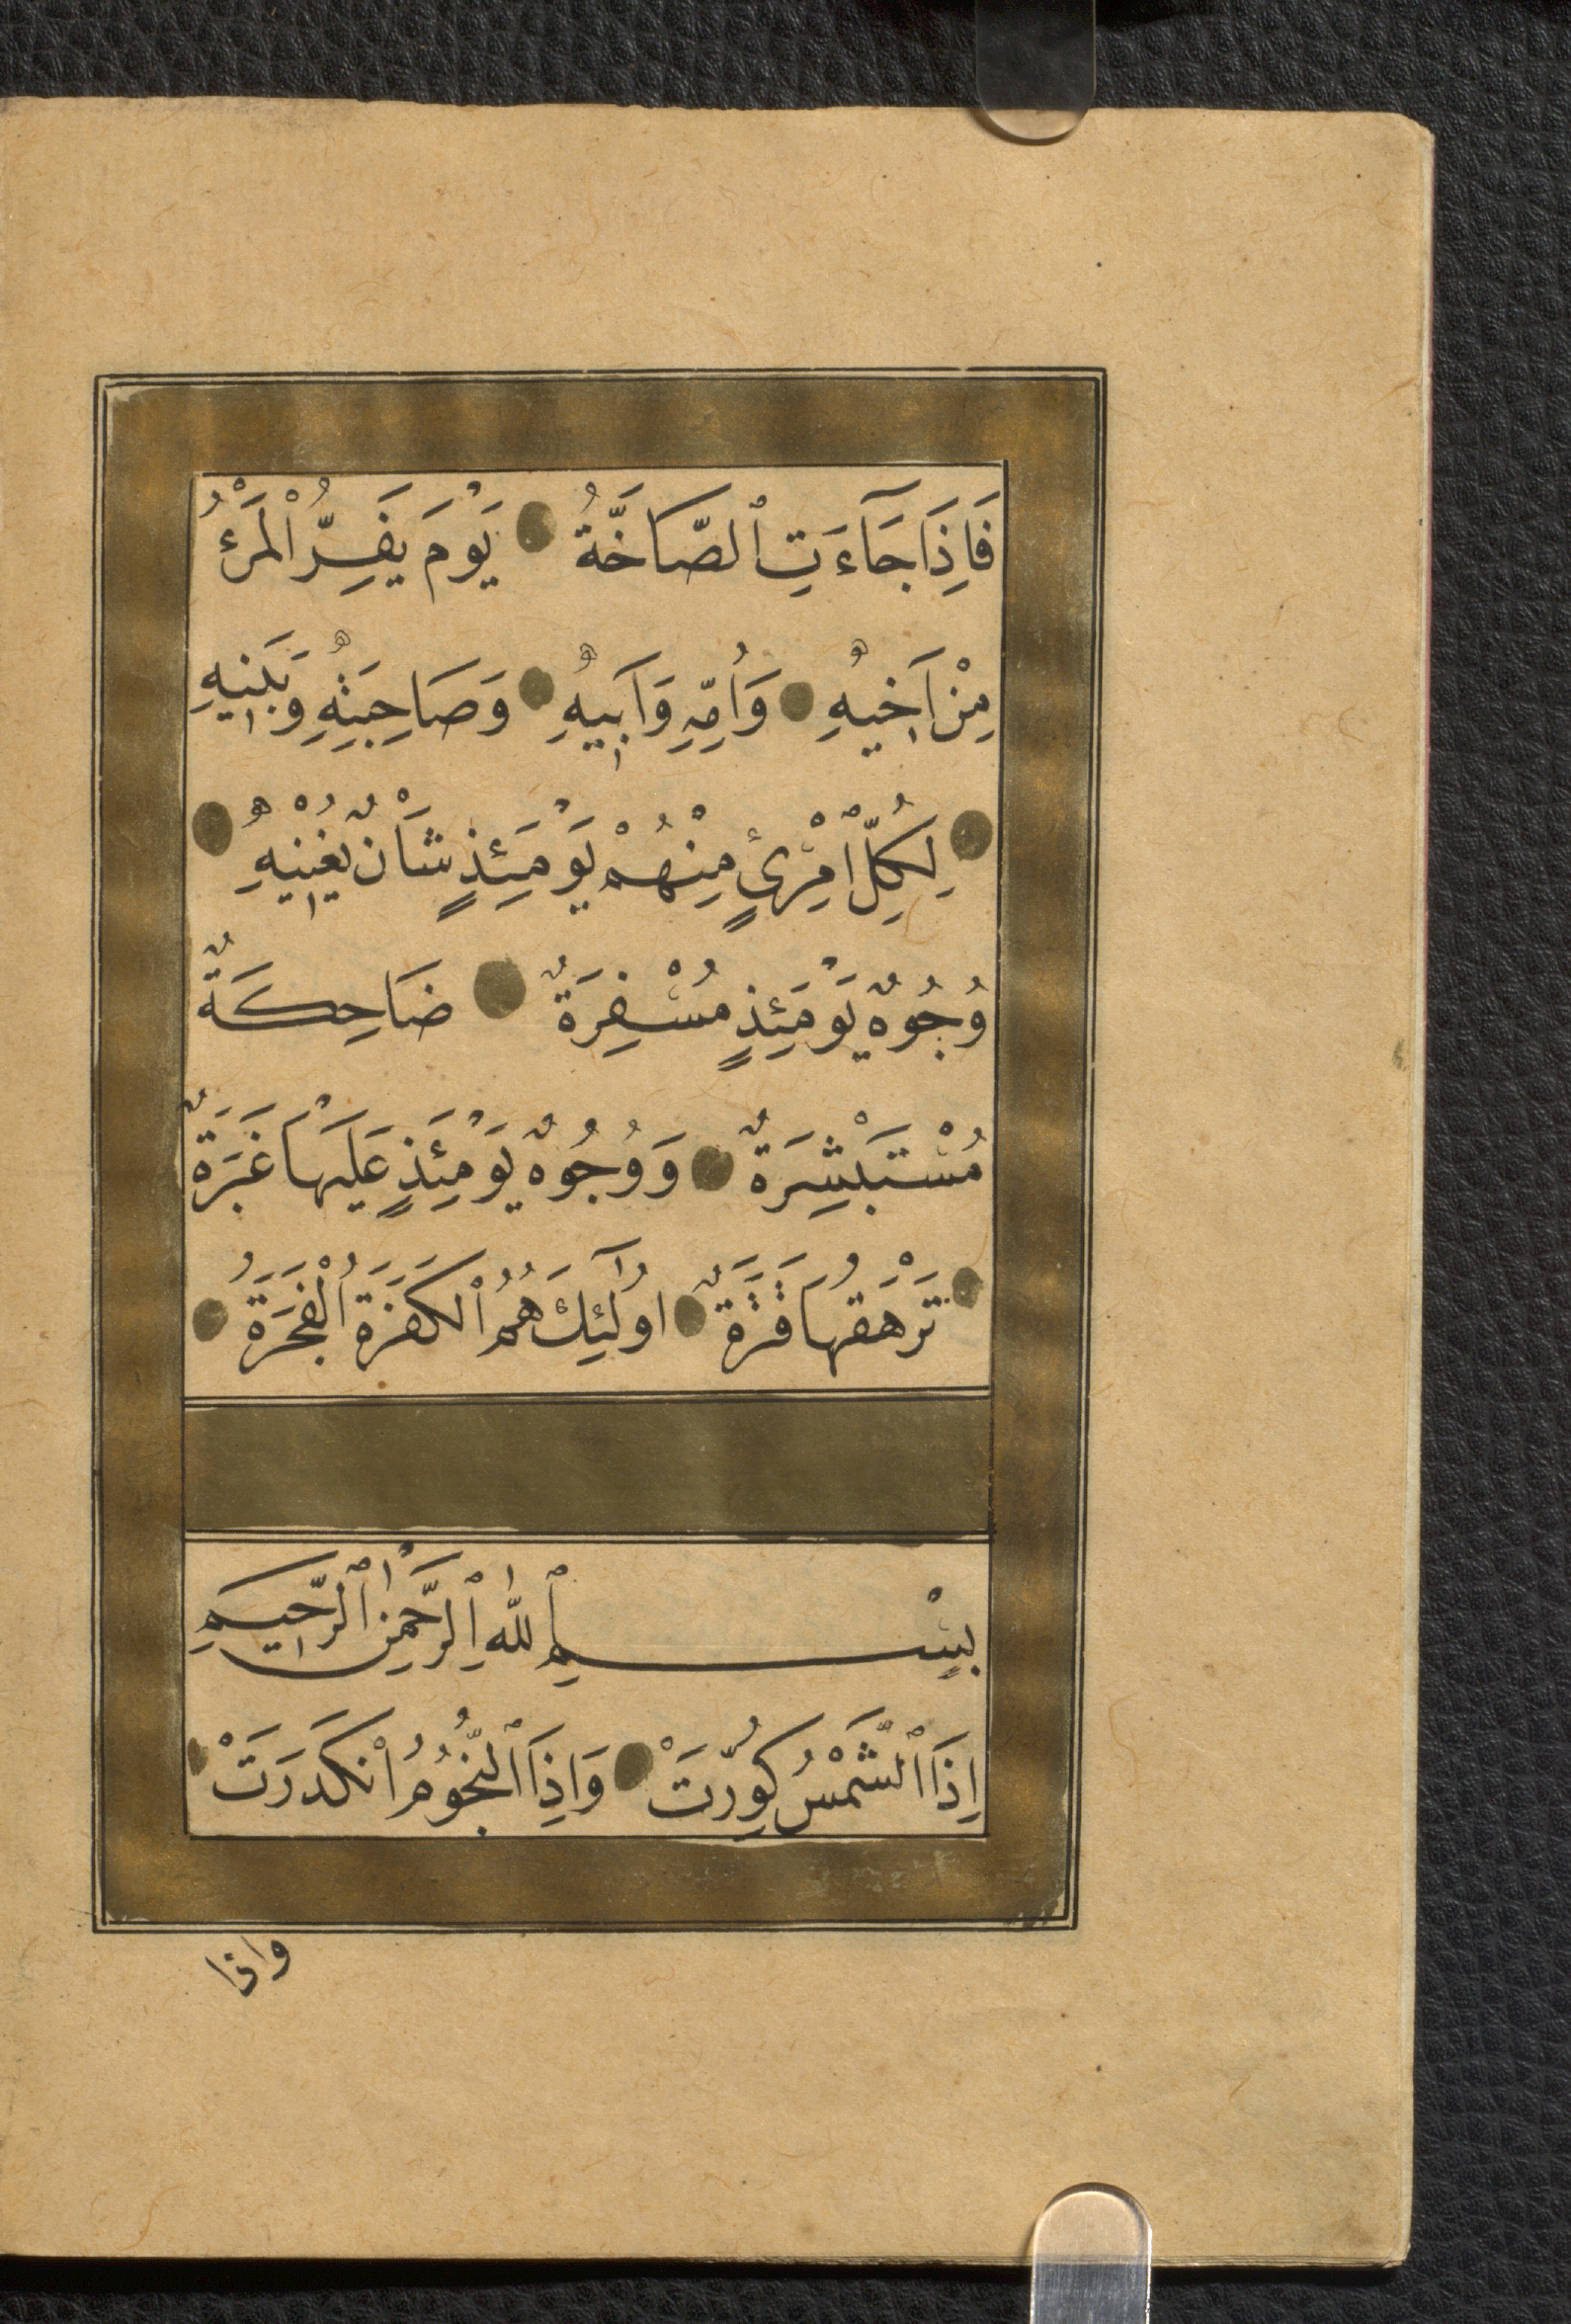 فَاِذَا جَآءَتِ ٱلصَّاخَّةُ يَوْمَ يَفِرُّ الْمَرْءُ
مِنْ اَخٖيهِ وَاُمِّهٖ وَاَبٖيهِ وَصَاحِبَتِهٖ وَبَنٖيهِ
لِكُلِّ ٱمْرِئٍ مِنْهُمْ يَوْمَئِذٍ شَاْنٌ يُغْنٖيهِ
وُجُوهٌ يَوْمَئِذٍ مُسْفِرَةٌ ضَاحِكَةٌ
مُسْتَبْشِرَةٌ وَوُجُوهٌ يَوْمَئِذٍ عَلَيْهَا غَبَرَةٌ
تَرْهَقُهَا قَتَرَةٌ اُولٰٓئِكَ هُمُ ٱلْكَفَرَةُ الْفَجَرَةُ
بِسْمِ ٱللّٰهِ ٱلرَّحْمٰنِ ٱلرَّحٖيمِ
اِذَا ٱلشَّمْسُ كُوِّرَتْ وَاِذَا ٱلنُّجُومُ انْكَدَرَتْ
واذا